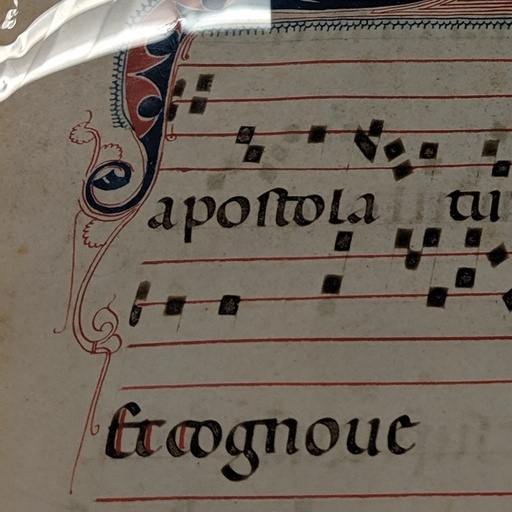 apostola tui
Et cognoue